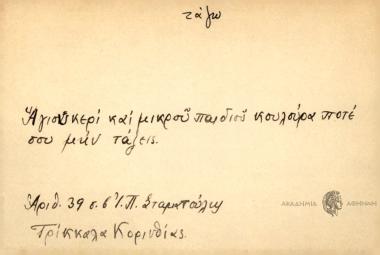 τάζω
Ἁγιοῦ κερί καί μικροῦ παιδιοῦ κουλούρα ποτέ
σου μήν τάζεις.
Ἀριθ. 39 σ. 6 Ἰ. Π. Σταματούλης
Τρίκκαλα Κορινθίας.
ΑΚΑΔΗΜΙΑ ΑΘΗΝΩΝ